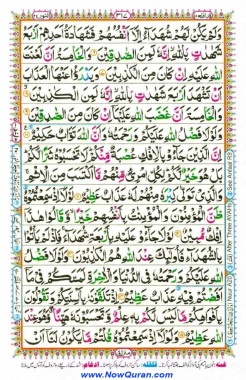 النور ٢٤
وَلَمْ يَكُنْ لَّهُمْ شُهَدَآءُ اِلَّآ اَنْفُسُهُمْ فَشَهَادَةُ اَحَدِهِمْ اَرْبَعُ
شَهٰدٰتٍۭ بِاللّٰهِ ۙ اِنَّهٗ لَمِنَ الصّٰدِقِيْنَ وَالْخَامِسَةُ اَنَّ لَعْنَتَ
اللّٰهِ عَلَيْهِ اِنْ كَانَ مِنَ الْكٰذِبِيْنَ وَيَدْرَؤُا عَنْهَا الْعَذَابَ
اَنْ تَشْهَدَ اَرْبَعَ شَهٰدٰتٍۭ بِاللّٰهِ ۙ اِنَّهٗ لَمِنَ الْكٰذِبِيْنَ
وَالْخَامِسَةَ اَنَّ غَضَبَ اللّٰهِ عَلَيْهَآ اِنْ كَانَ مِنَ الصّٰدِقِيْنَ
وَلَوْلَا فَضْلُ اللّٰهِ عَلَيْكُمْ وَرَحْمَتُهٗ وَاَنَّ اللّٰهَ تَوَّابٌ حَكِيْمٌ
اِنَّ الَّذِيْنَ جَآءُوْ بِالْاِفْكِ عُصْبَةٌ مِّنْكُمْ ؕ لَا تَحْسَبُوْهُ شَرًّا لَّكُمْ
بَلْ هُوَ خَيْرٌ لَّكُمْ ؕ لِكُلِّ امْرِئٍ مِّنْهُمْ مَّا اكْتَسَبَ مِنَ الْاِثْمِ
وَالَّذِيْ تَوَلّٰى كِبْرَهٗ مِنْهُمْ لَهٗ عَذَابٌ عَظِيْمٌ لَوْلَآ اِذْ سَمِعْتُمُوْهُ
ظَنَّ الْمُؤْمِنُوْنَ وَالْمُؤْمِنٰتُ بِاَنْفُسِهِمْ خَيْرًا ۙ وَّقَالُوْا هٰذَآ
اِفْكٌ مُّبِيْنٌ لَوْلَا جَآءُوْ عَلَيْهِ بِاَرْبَعَةِ شُهَدَآءَ ۚ فَاِذْ لَمْ يَاْتُوْا
بِالشُّهَدَآءِ فَاُولٰٓئِكَ عِنْدَ اللّٰهِ هُمُ الْكٰذِبُوْنَ وَلَوْلَا فَضْلُ
اللّٰهِ عَلَيْكُمْ وَرَحْمَتُهٗ فِي الدُّنْيَا وَالْاٰخِرَةِ لَمَسَّكُمْ فِيْ مَآ
اَفَضْتُمْ فِيْهِ عَذَابٌ عَظِيْمٌ اِذْ تَلَقَّوْنَهٗ بِاَلْسِنَتِكُمْ وَتَقُوْلُوْنَ
بِاَفْوَاهِكُمْ مَّا لَيْسَ لَكُمْ بِهٖ عِلْمٌ وَّتَحْسَبُوْنَهٗ هَيِّنًا ۖ وَّهُوَ عِنْدَ
اللّٰهِ عَظِيْمٌ وَلَوْلَآ اِذْ سَمِعْتُمُوْهُ قُلْتُمْ مَّا يَكُوْنُ لَنَآ اَنْ
www.NowQuran.com